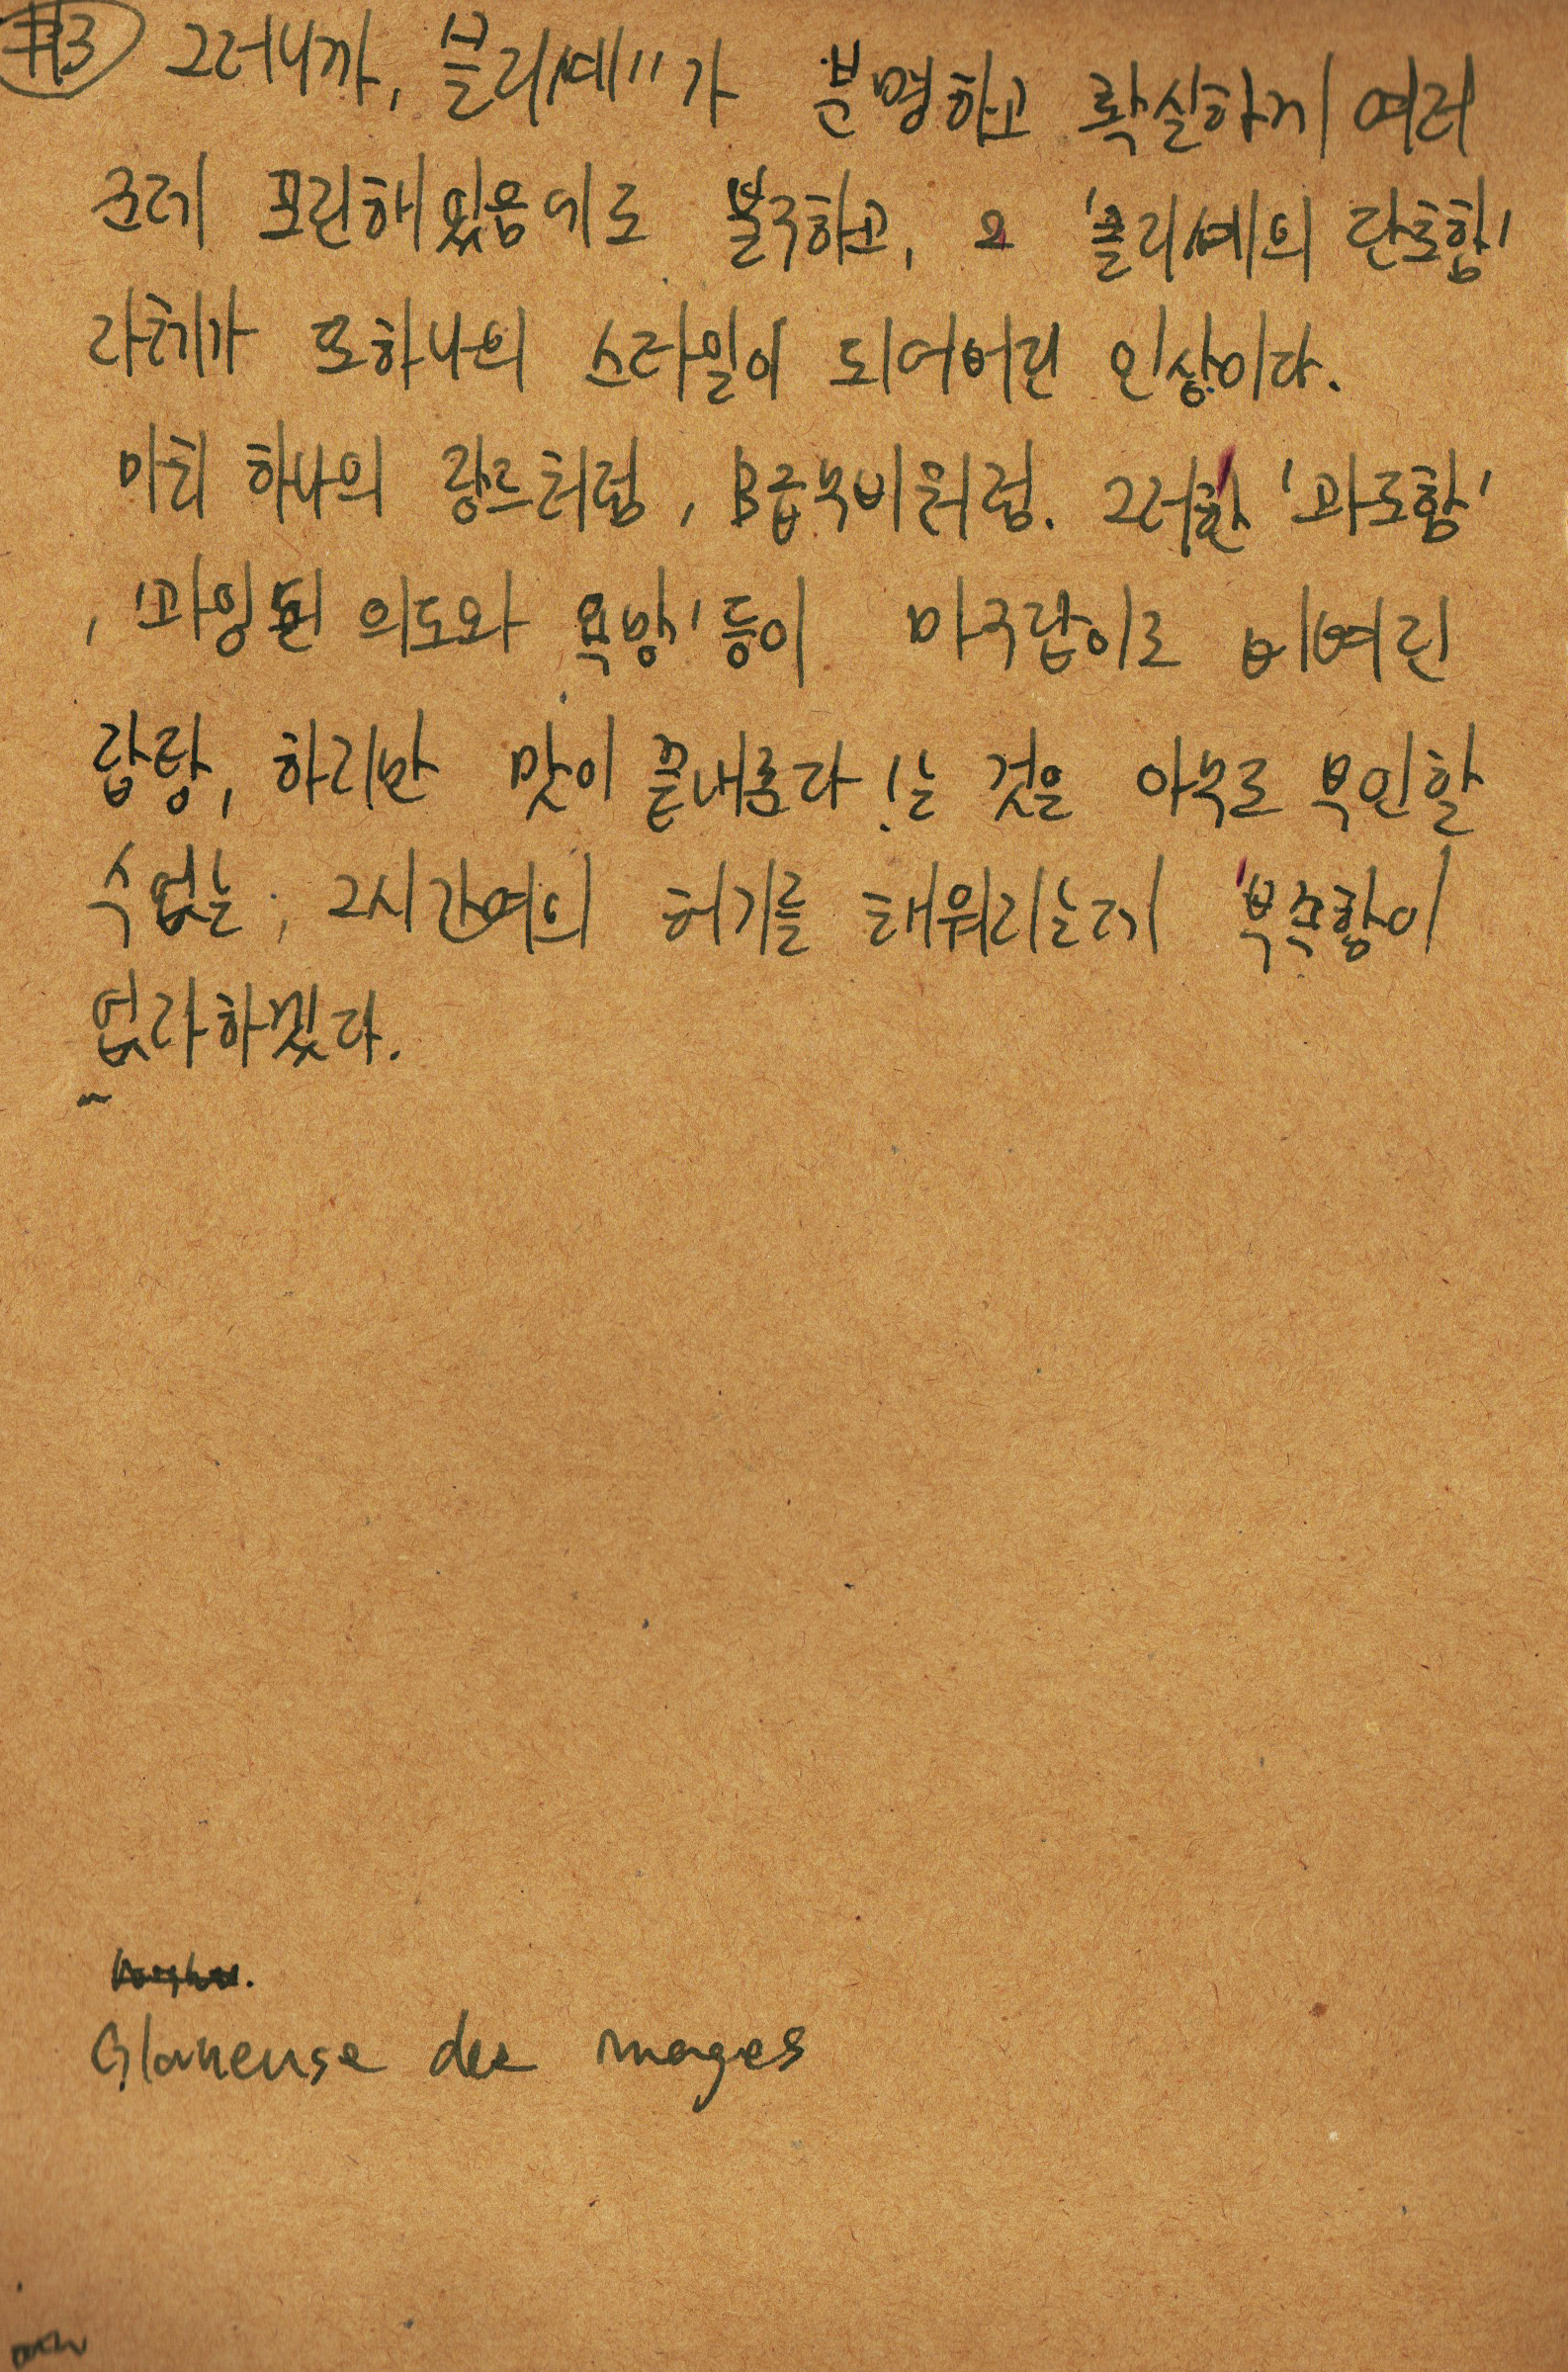 #3 그러니까, 클리셰"가 분명하고 확실하게 여러
군데 포진해있음에도 불구하고, 그 '클리셰의 단호함'
자체가 또하나의 스타일이 되어버린 인상이다.
마치 하나의 장르처럼, B급무비처럼. 그러한 '과도함'
, '과잉된 의도와 욕망' 등이 마구잡이로 버무린
잡탕, 하지만 맛이 끝내준다!는 것을 아무도 부인할
수 없는, 2시간여의 허기를 채워주는데 부족함이
없다하겠다.
Glaneuse des images